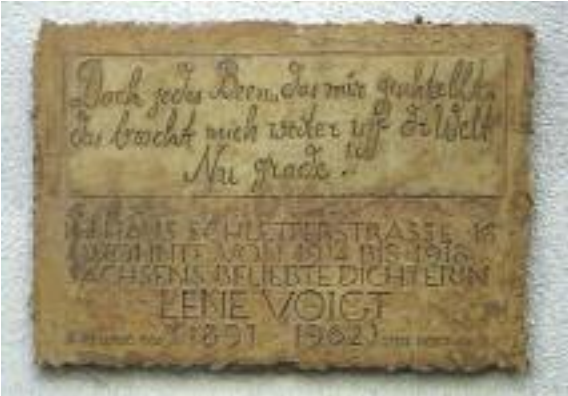 Doch jedes Been, das mir geschtellt,
das bracht mich weiter uff dr Welt
Nu grade!!
IM HAUS SCHLETTERSTRASSE 18
WOHNTE VON 1914 BIS 1918
SACHSENS BELIEBTE DICHTERIN
LENE VOIGT
(1891 1962)